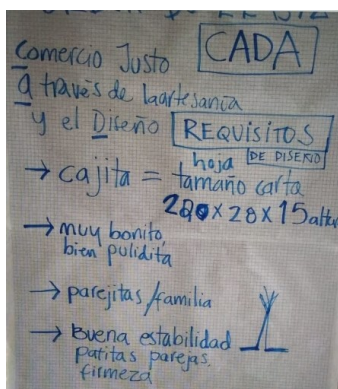 Comercio Justo CADA
a través de la artesanía
y el Diseño REQUISITOS
DE DISEÑO
→ cajita = hoja tamaño carta
220 x 28 x 15 altur
→ muy bonito,
bien pulidita
→ parejitas/familia
→ Buena estabilidad
patitas parejas.
firmeza